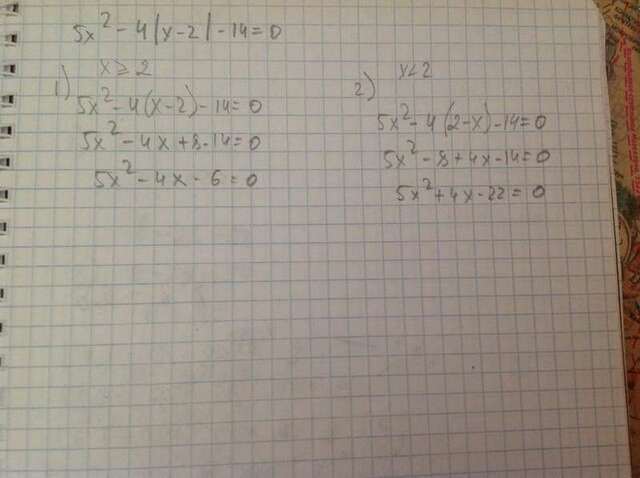 5x² - 4|x-2| - 14 = 0
1) x ≥ 2
5x² - 4(x-2) - 14 = 0
5x² - 4x + 8 - 14 = 0
5x² - 4x - 6 = 0
2) x < 2
5x² - 4(2-x) - 14 = 0
5x² - 8 + 4x - 14 = 0
5x² + 4x - 22 = 0